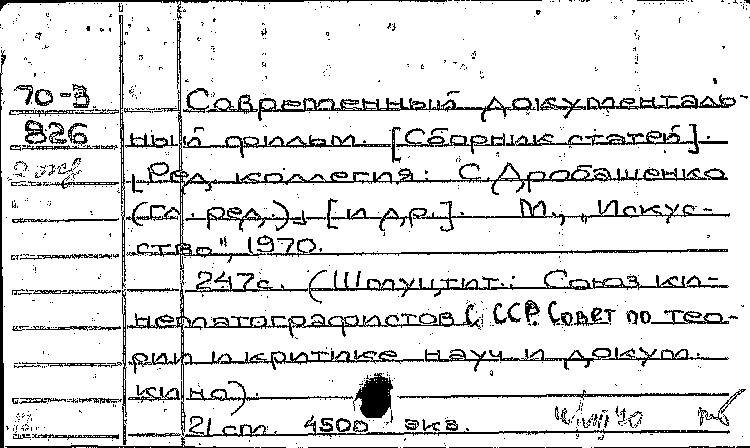 70-3 Современный документаль-
826 ный фильм. [Сборник статей].
2 экз [Ред. коллегия: С. Дробашенко
(гл. ред.)] [и др.]. М., „Искус-
ство", 1970.
247с. (Шмуцтит.: Союз ки-
нематографистов СССР. Совет по тео-
рии и критике науч и докум.
кино).
21 cm. 4500 экз.